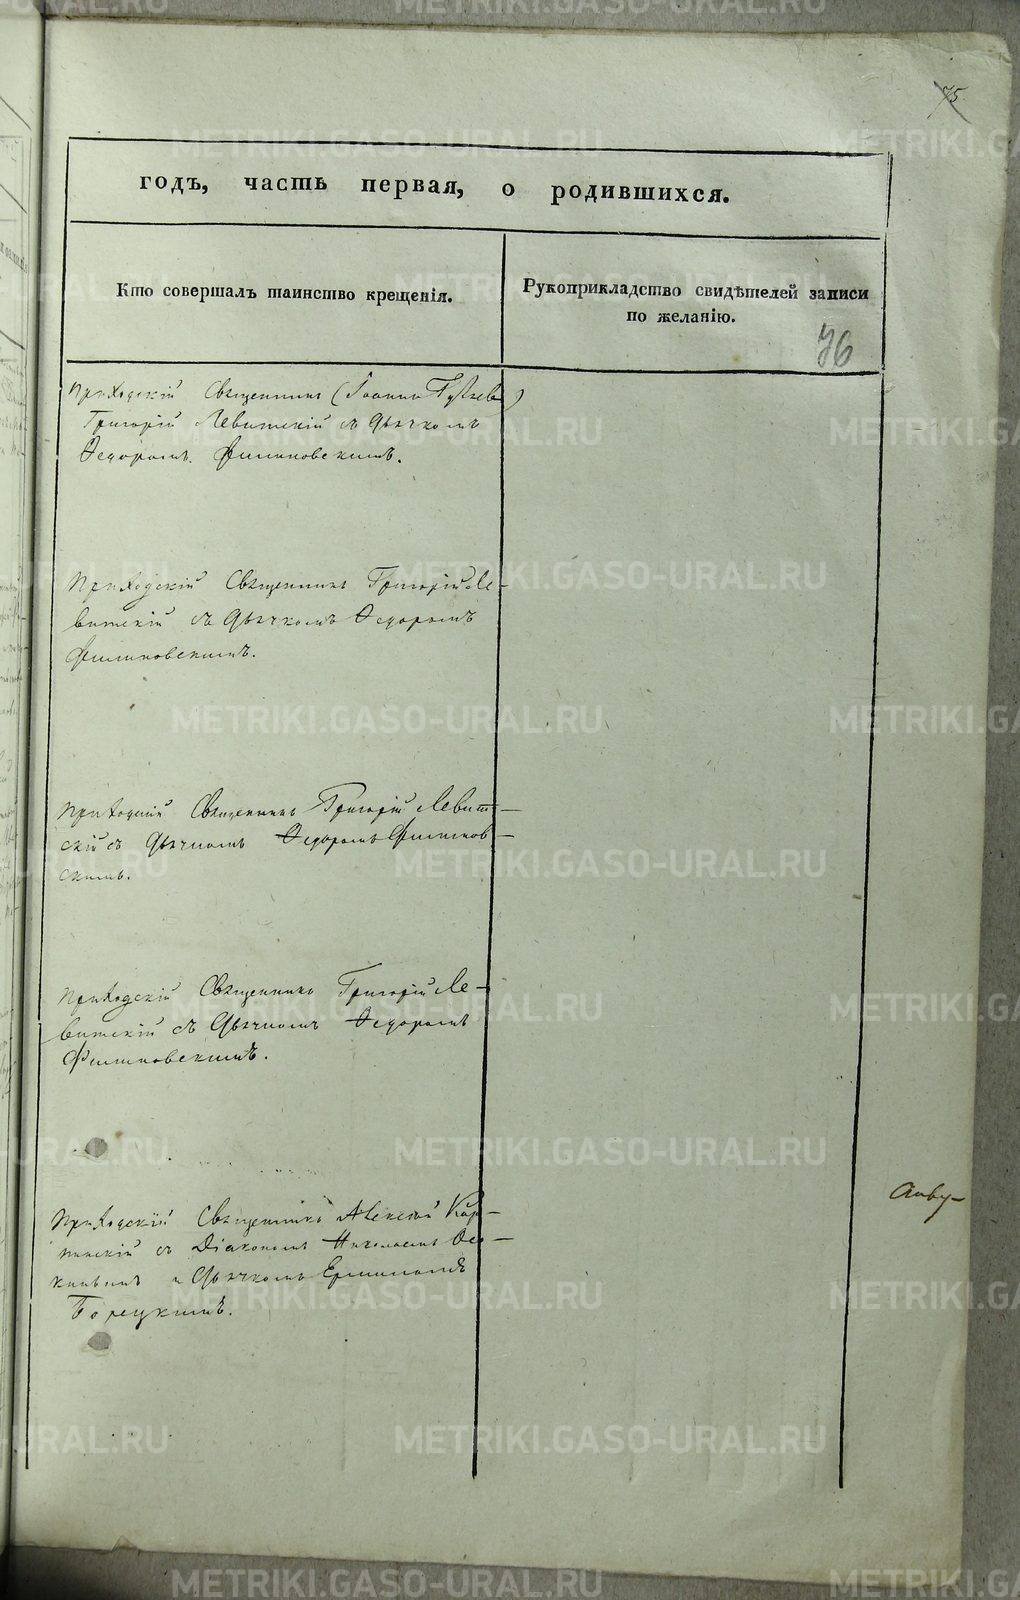 75
годъ, часть первая, о родившихся.
Кто совершалъ таинство крещенія.
Рукоприкладство свидѣтелей записи
по желанію.
76
Приходскій Священникъ (Іоаннъ
Григорій Левитскій съ Дьячкомъ
Ѳедоромъ Филиповскимъ.
Приходскій Священникъ Григорій Ле-
витскій съ Дьячкомъ Ѳедоромъ
Филиповскимъ.
Приходскій Священникъ Григорій Левит-
скій съ Дьячкомъ Ѳедоромъ Филипов-
скимъ.
Приходскій Священникъ Григорій Ле-
витскій съ Дьячкомъ Ѳедоромъ
Филиповскимъ.
Приходскій Священникъ Алексѣй Кар-
пинскій съ Діакономъ Николаемъ
и Дьячкомъ
Борецкимъ.
METRIKI.GASO-URAL.RU